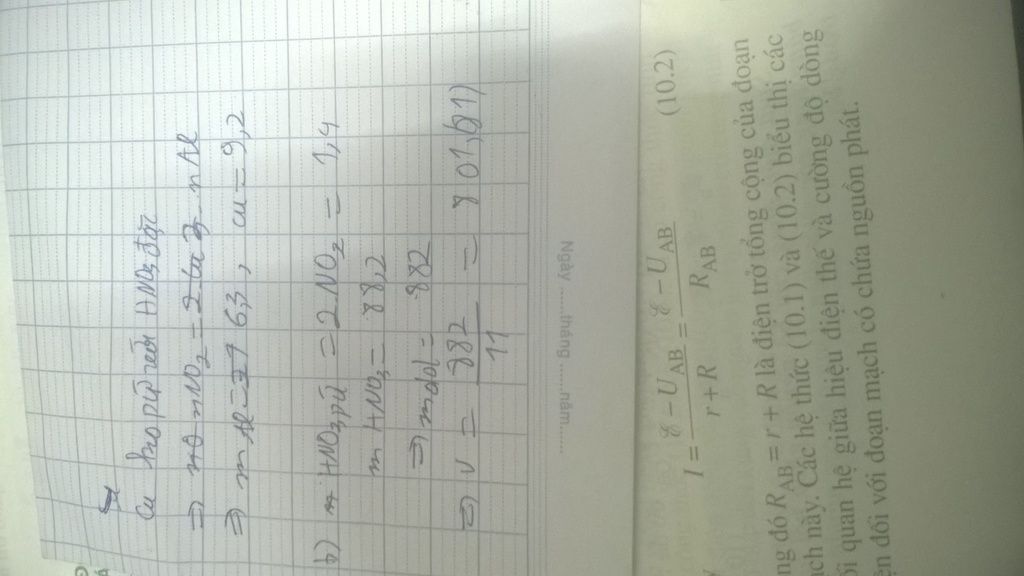 Cu pứ với HNO3 đặc
=> nNO2 = 2
=> mAl = 6,3, Cu = 9,2
b) HNO3 pứ = 2NO2 = 1,4
mHNO3 = 88,2
=> mdd = 882
=> V = 882/11 = 801,
Ngày ......tháng ......năm......
I = (ℰ − U_AB)/(r + R) = (ℰ − U_AB)/R_AB (10.2)
ng đó R_AB = r + R là điện trở tổng cộng của đoạn
ạch này. Các hệ thức (10.1) và (10.2) biểu thị các
ối quan hệ giữa hiệu điện thế và cường độ dòng
ện đối với đoạn mạch có chứa nguồn phát.